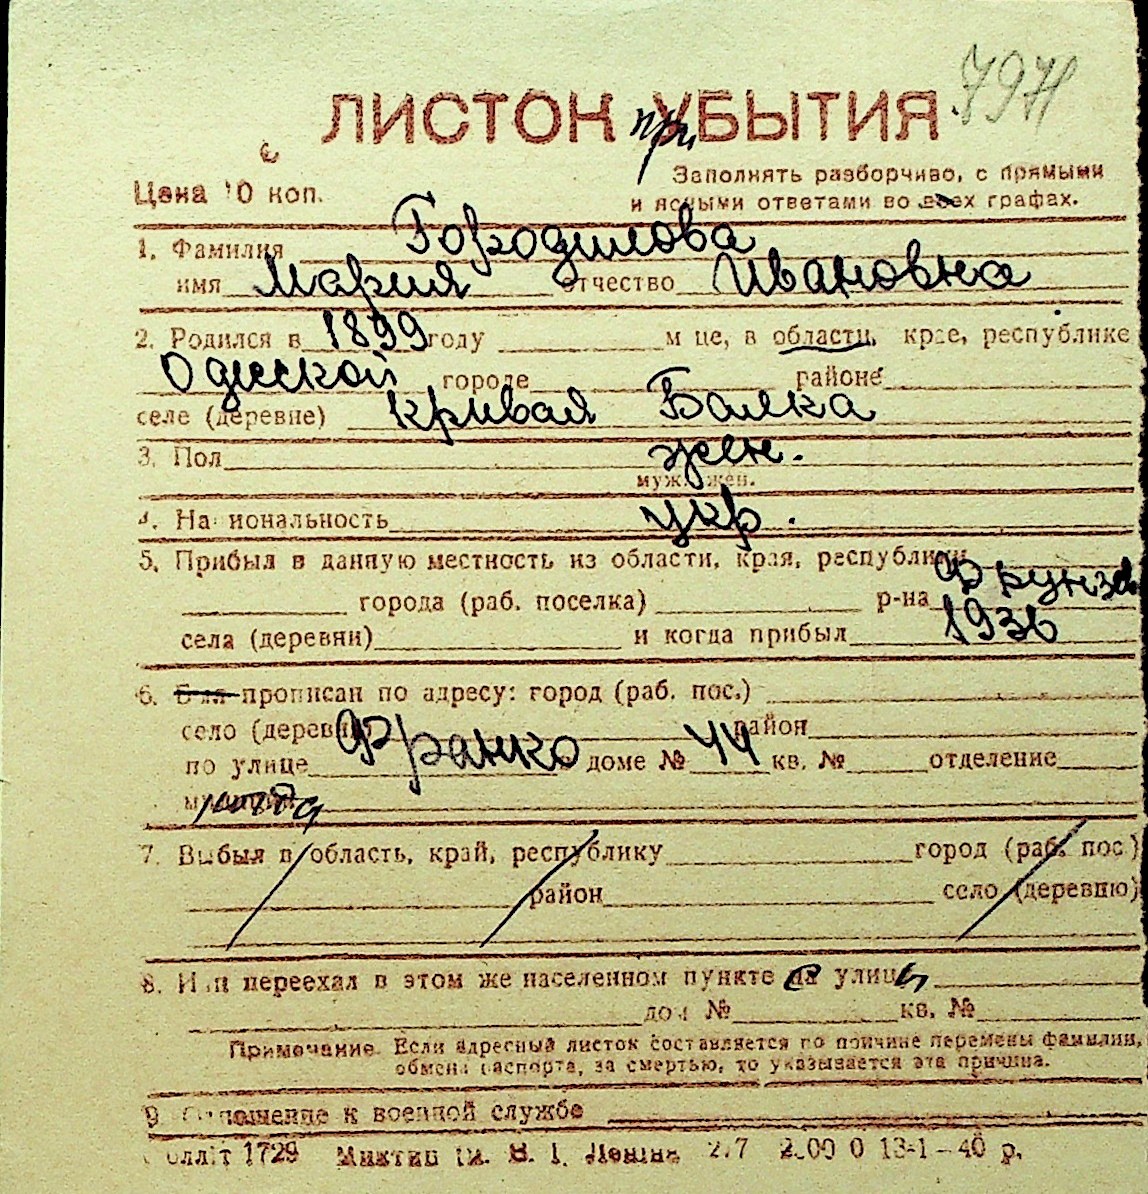 7971
ЛИСТОК при УБЫТИЯ
Цена 10 коп.
Заполнять разборчиво, с прямыми
и ясными ответами во всех графах.
1. Фамилия Городилова
имя Мария отчество Ивановна
2. Родился в 1899 году м це, в области, крае, республике
Одесской городе районе
селе (деревне) Кривая Балка
3. Пол жен.
муж. жен.
4. Национальность укр.
5. Прибыл в данную местность из области, края, республики
города (раб. поселка) р-на Фрунзе
села (деревни) и когда прибыл 1936
6. Был прописан по адресу: город (раб. пос.)
село (деревня) район
по улице Франко доме № 44 кв. № отделение
7. Выбыл в область, край, республику город (раб. пос)
район село (деревню)
8. Или переехал в этом же населенном пункте с улицы
дом № кв. №
Примечание. Если адресный листок составляется по причине перемены фамилии,
обмена паспорта, за смертью, то указывается эта причина.
9. Отношение к военной службе
1729 им. В. І. Леніна 2.7 13-1-40 р.